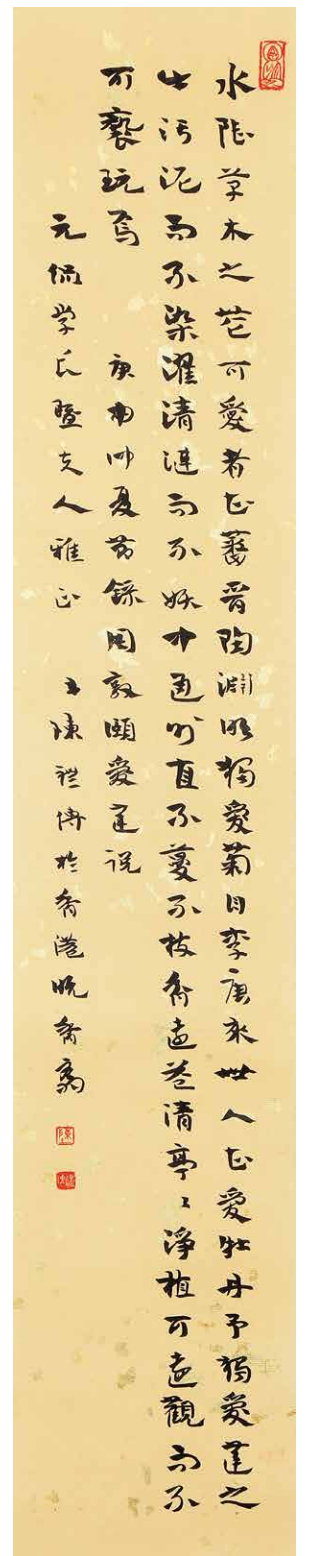 水陸草木之花可愛者甚蕃晉陶淵明獨愛菊自李唐來世人甚愛牡丹予獨愛蓮之
出污泥而不染濯清漣而不妖中通外直不蔓不枝香遠益清亭々淨植可遠觀而不
可褻玩焉 庚申仲夏節錄周敦頤愛蓮說
元侃学長暨夫人雅正 弟陳禮傳於香港晚香齋